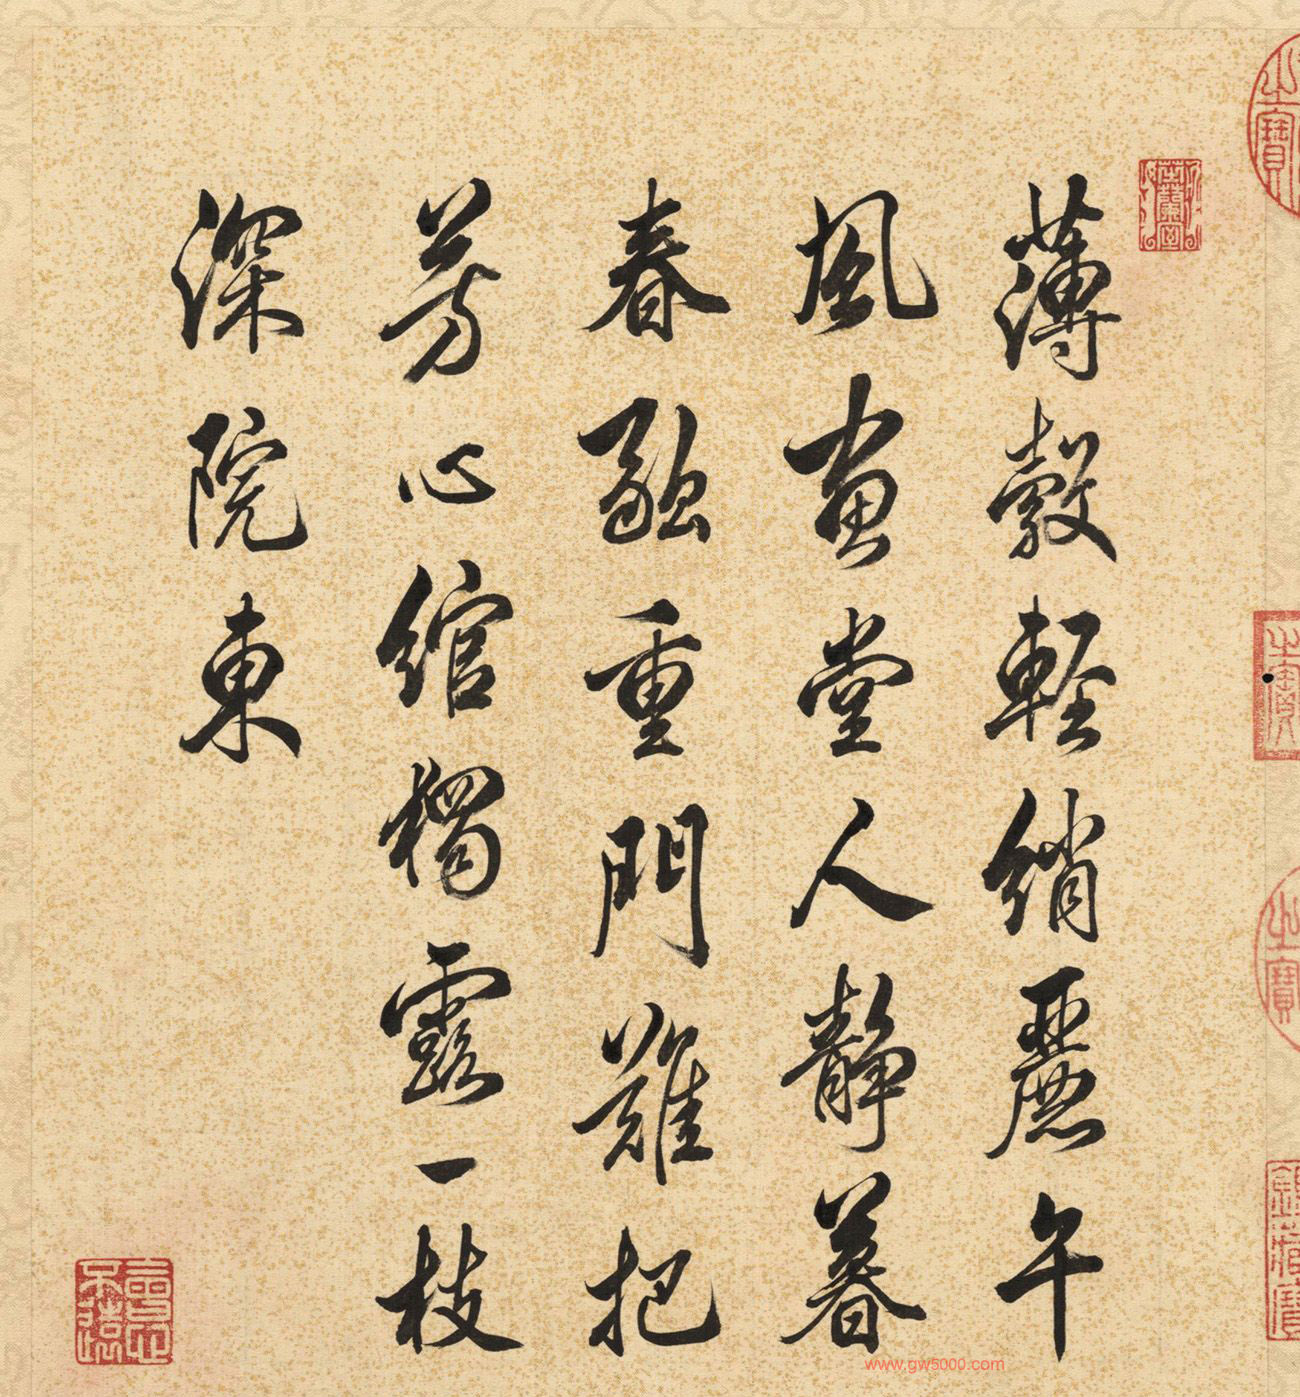 薄縠輕綃麗午
風畫堂人靜暮
春融重門難把
芳心綰獨露一枝
深院東
www.gw5000.com
之寶
之寶